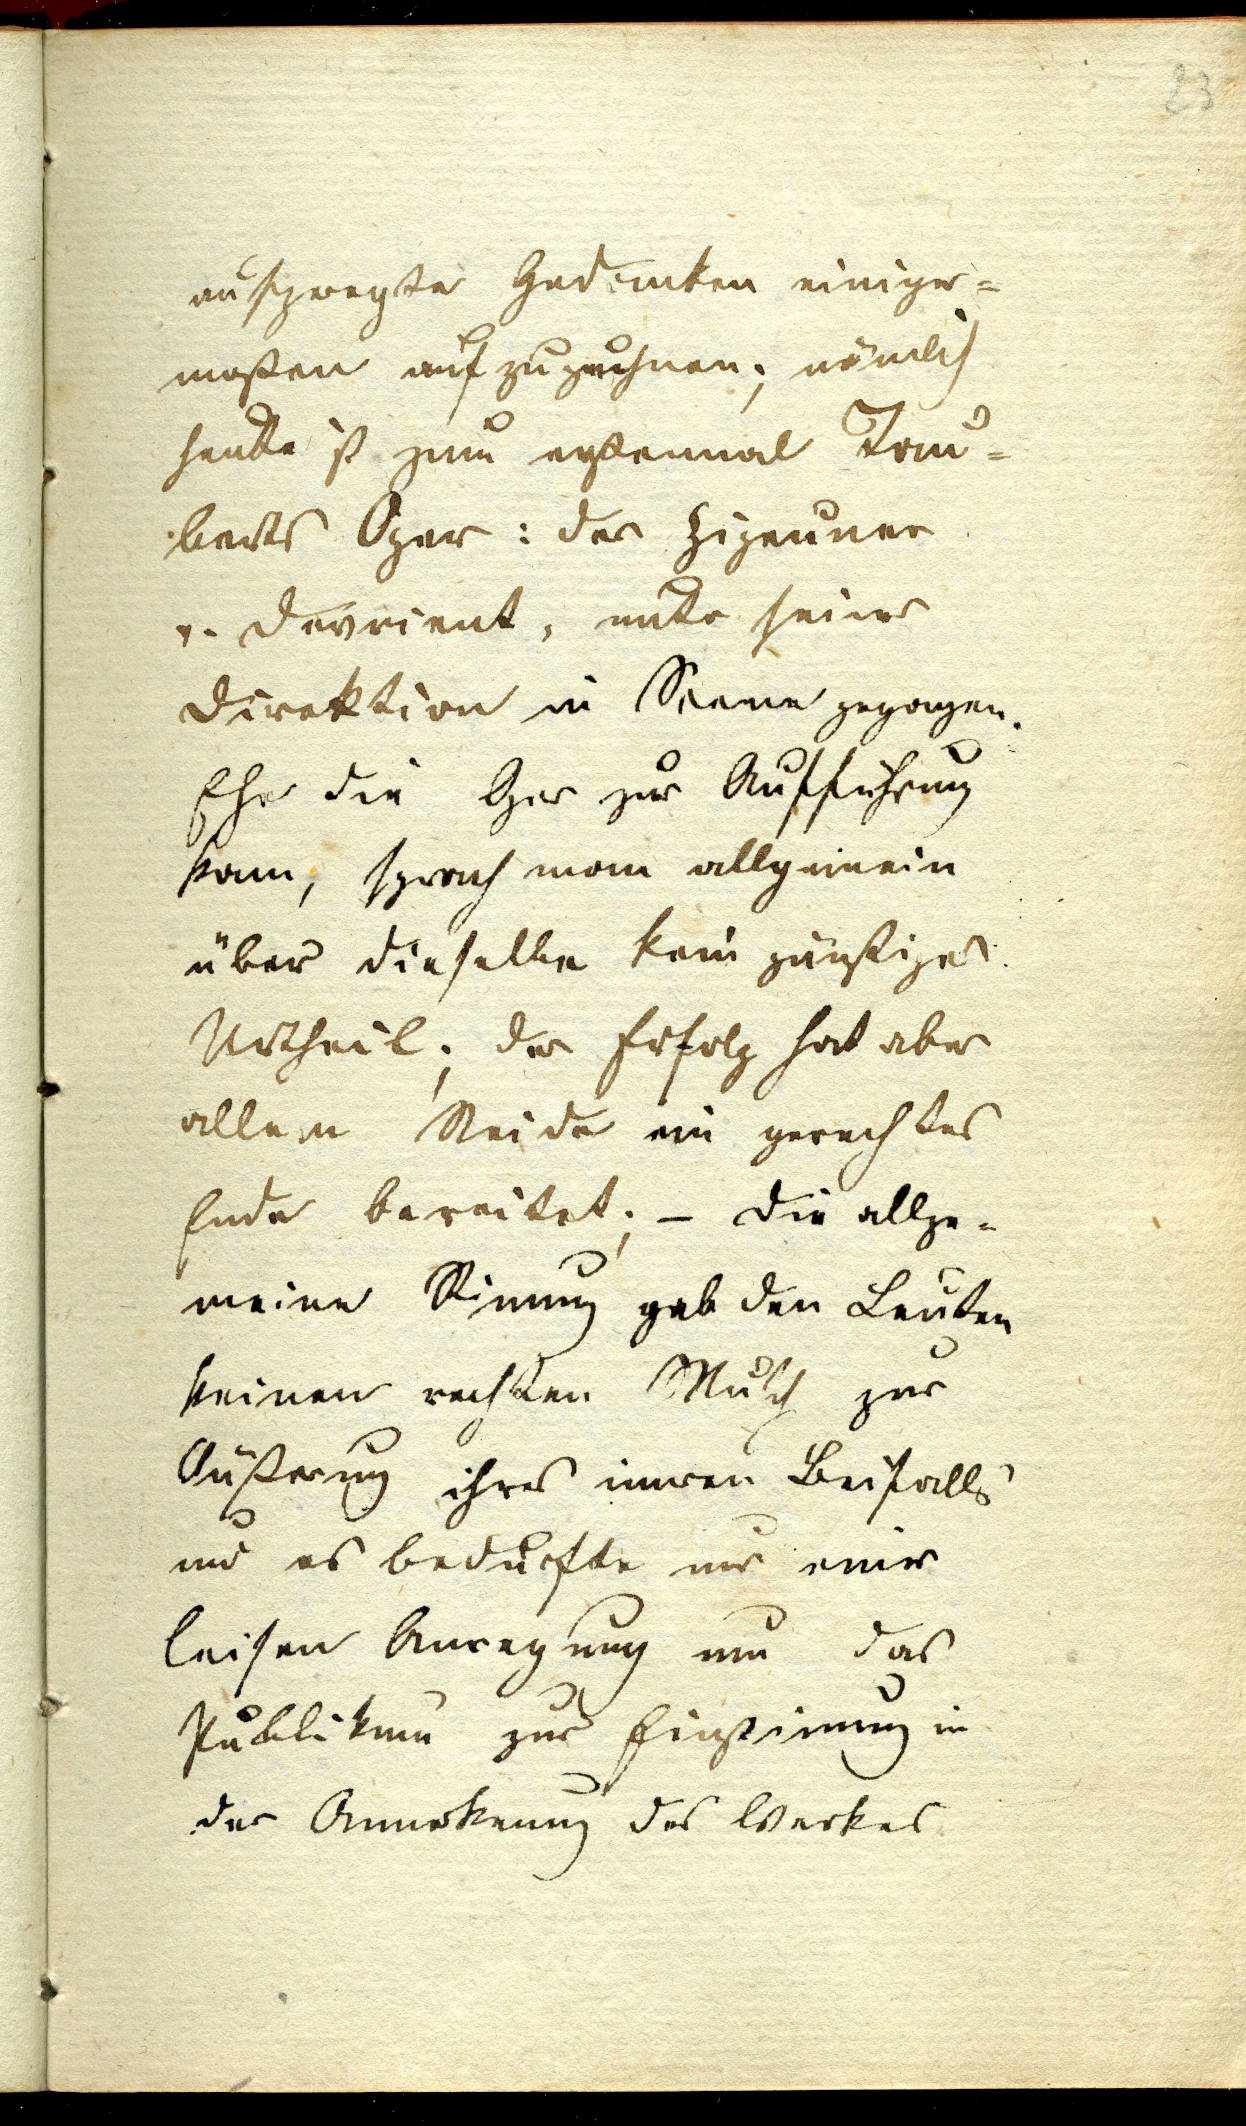 23
ausgeregte Gedanken einiger=
maßen aufzuzeichnen; nämlich
heute ist zum erstenmal Tau=
berts Oper: der Zigeuner
v. Devrient, unter seiner
Direktion in Scene gegangen.
Ehe die Oper zur Aufführung
kam, sprach man allgemein
über dieselbe kein günstiges
Urtheil; der Erfolg hat aber
allem Neide ein gerechtes
Ende bereitet; – die allge-
meine Stimung gab den Leuten
keinen rechten Muth zur
Äußerung ihres innren Beifalls
und es bedurfte nur einer
leisen Anregung um das
Publikum zur Einstimung in
der Annerkenung des Werkes